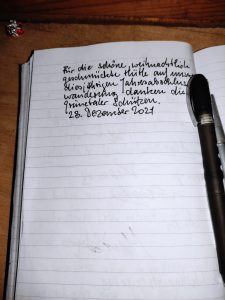 Für die schöne, weihnachtlich
geschmückte Hütte auf unserer
diesjährigen Jahresabschluss-
wanderung danken die
Schützen.
28. Dezember 2021